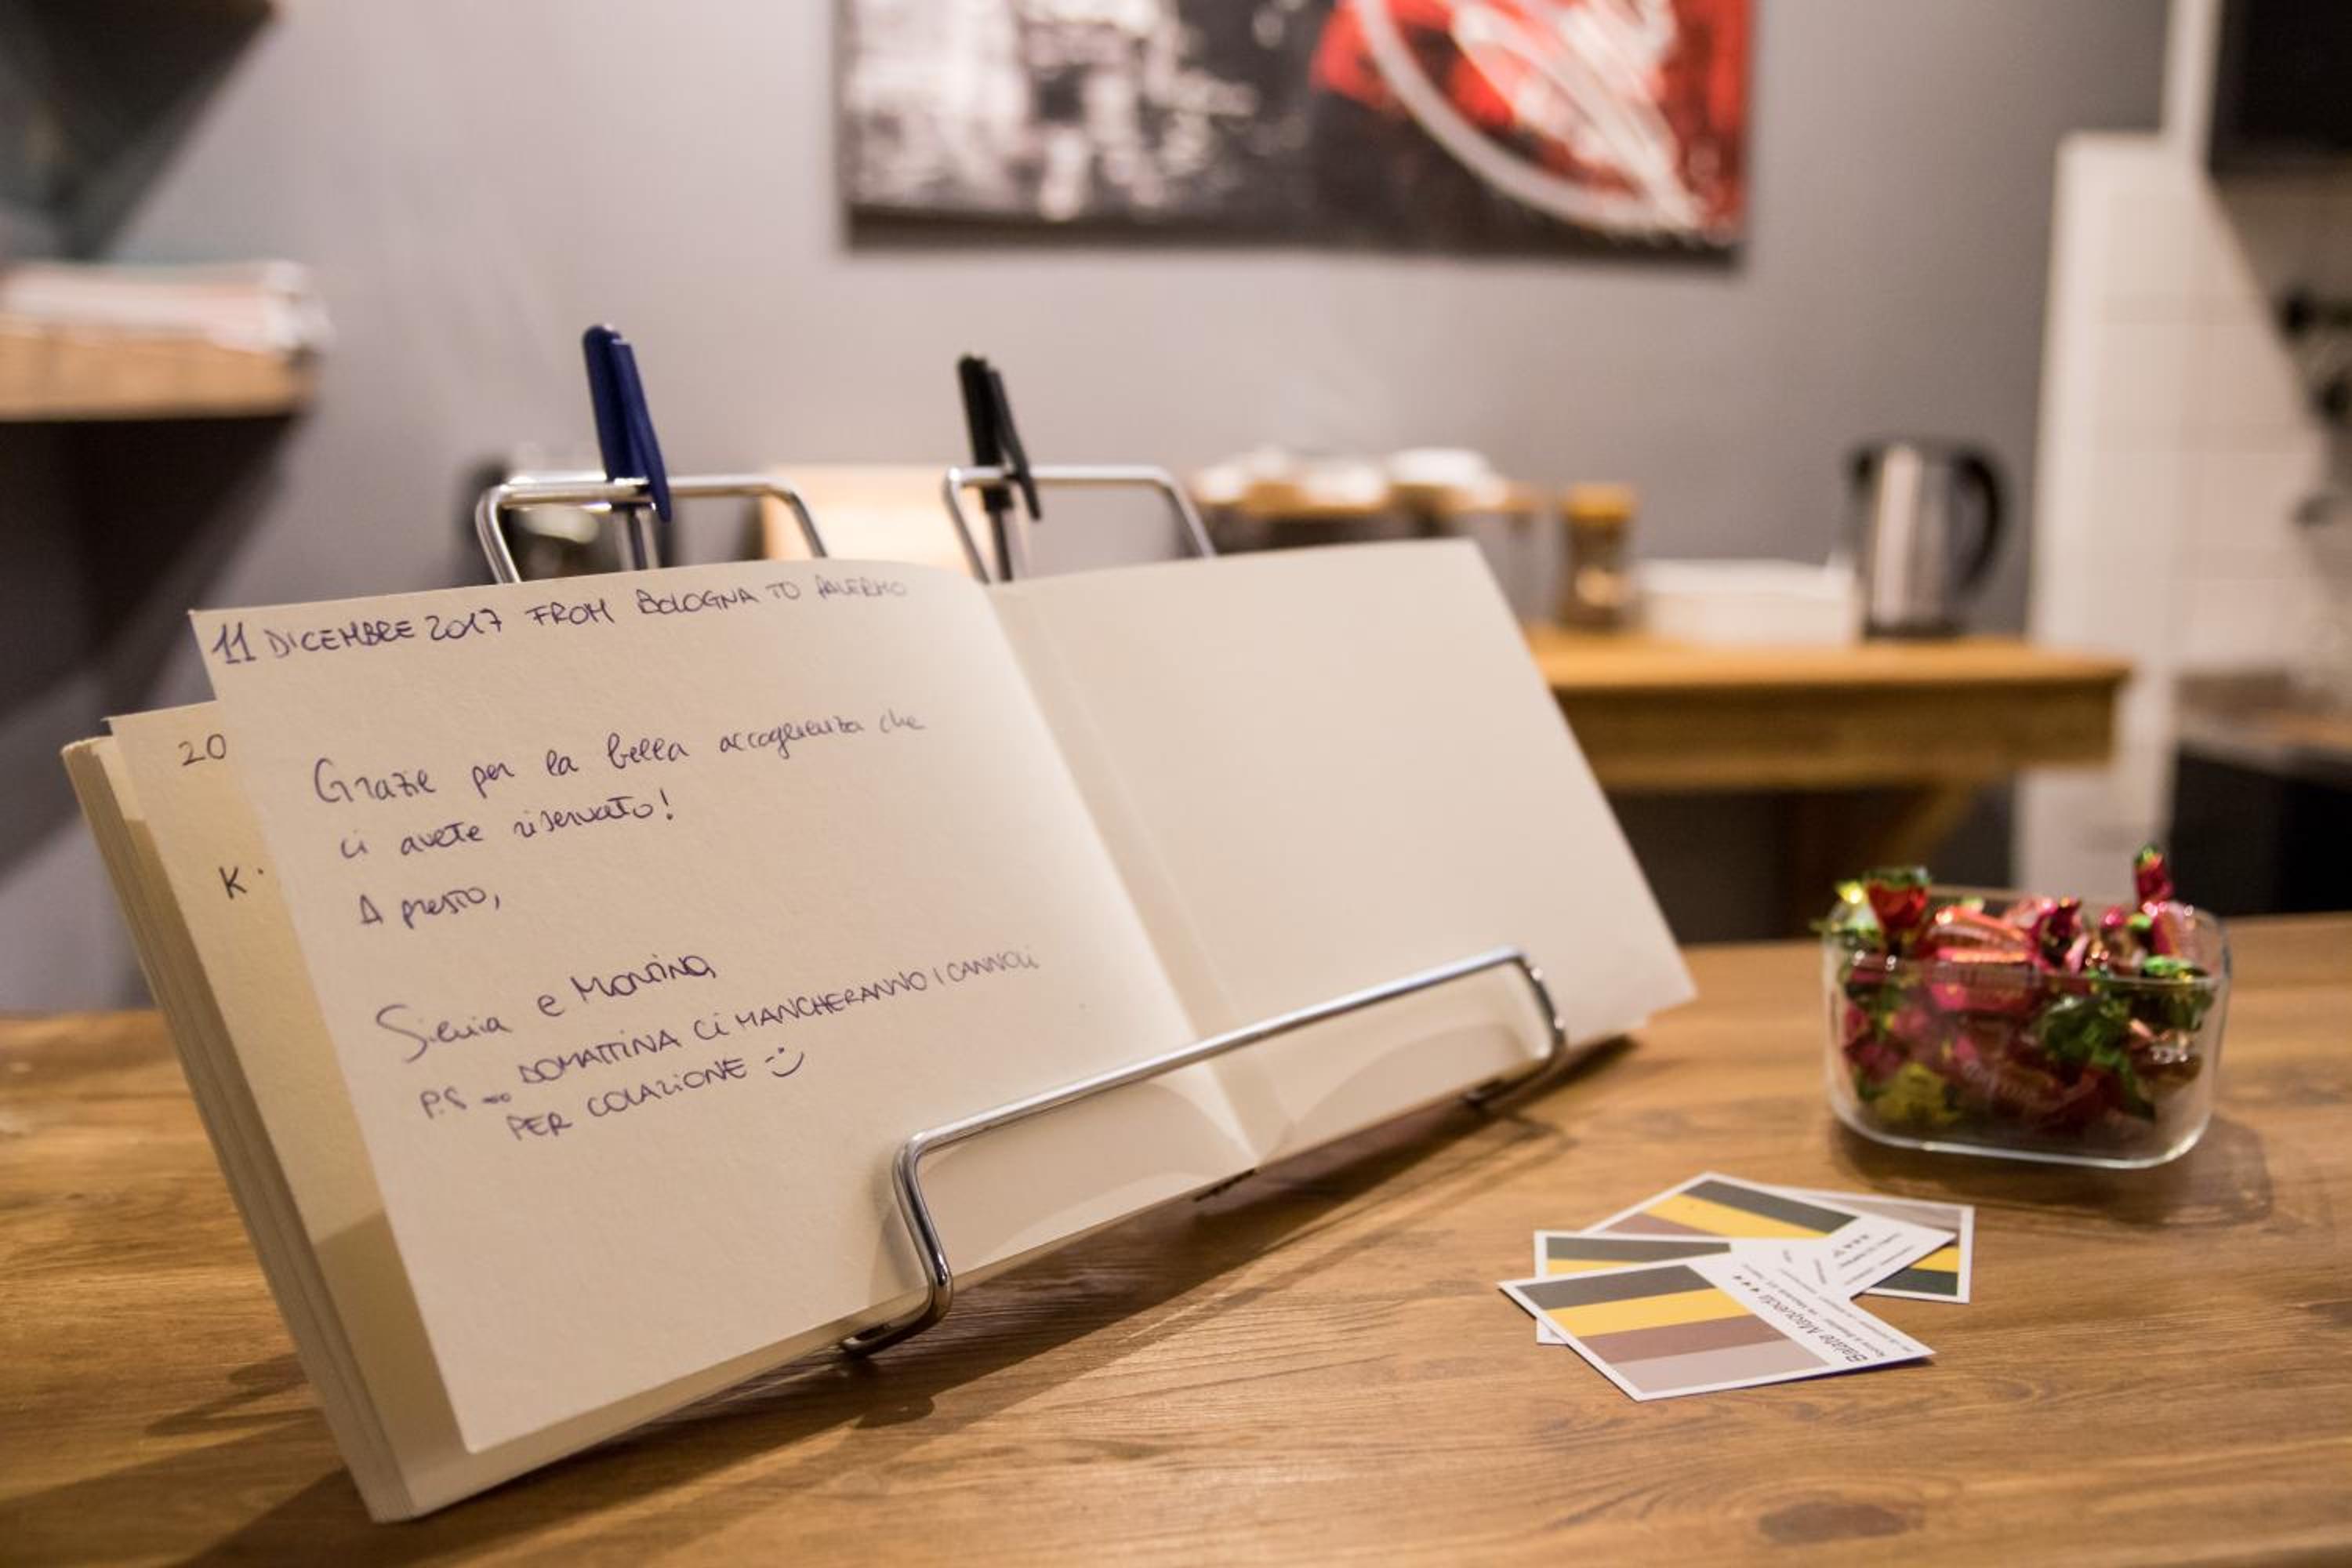 11 DICEMBRE 2017 FROM BOLOGNA TO PALERMO
Grazie per la bella accoglienza che
ci avete riservato!
A presto,
Silvia e Martina
P.S → DOMATTINA CI MANCHERANNO I CANNOLI
PER COLAZIONE :-)
20
K.
Balarte Maqueda